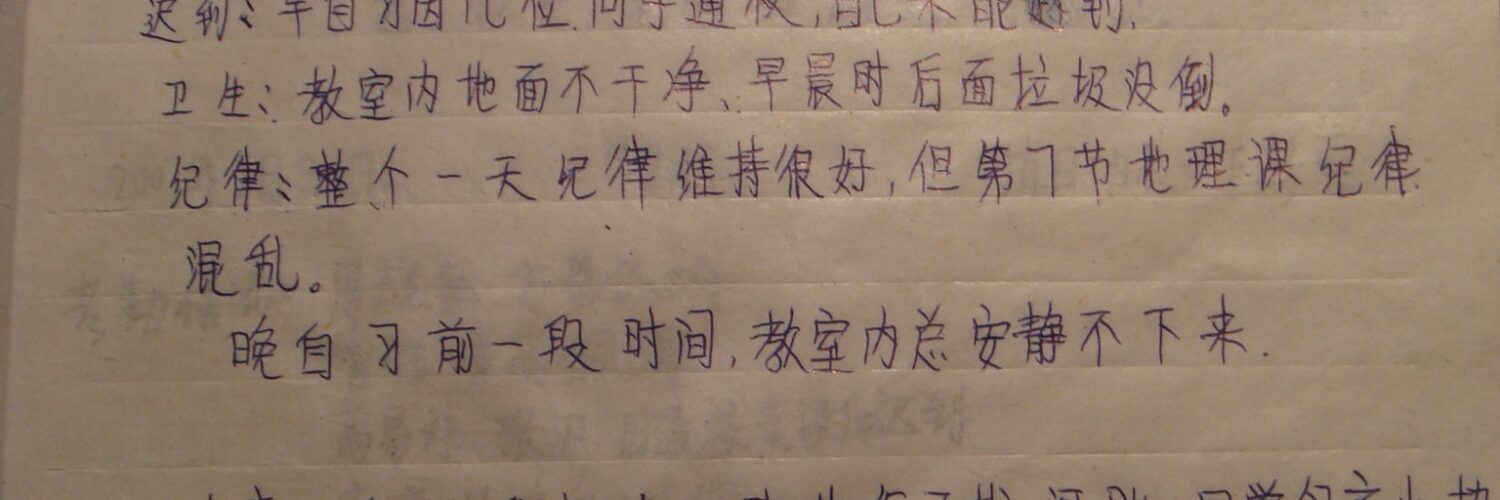 迟到：早自习因几位同学
卫生：教室内地面不干净、早晨时后面垃圾没倒。
纪律：整个一天纪律维持很好，但第7节地理课纪律
混乱。
晚自习前一段时间，教室内总安静不下来.